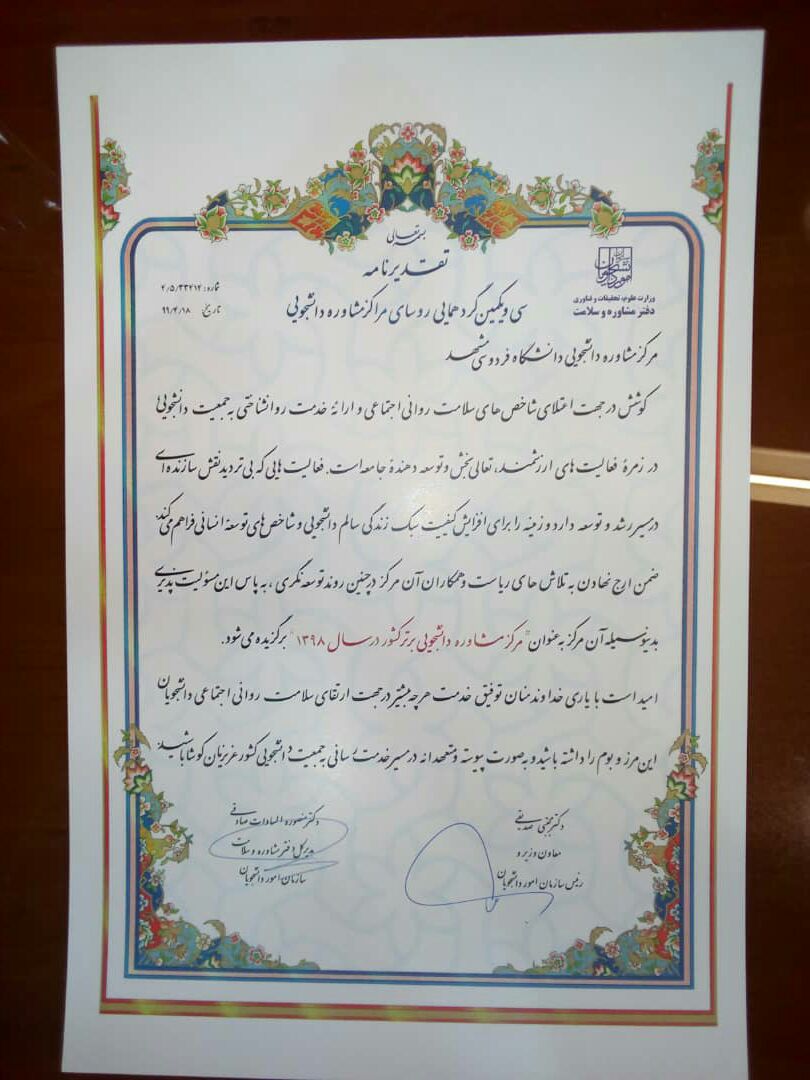 بسمه تعالی
تقدیرنامه
سی و یکمین گردهمایی روسای مراکز مشاوره دانشجویی
شماره: ۴/۵/۳۳۴۱۲
تاریخ: ۹۹/۴/۱۸
سازمان امور دانشجویان
وزارت علوم، تحقیقات و فناوری
دفتر مشاوره و سلامت
مرکز مشاوره دانشجویی دانشگاه فردوسی مشهد
کوشش در جهت اعتلای شاخص های سلامت روانی اجتماعی و ارائه خدمت روانشناختی به جمعیت دانشجویی
در زمرهٔ فعالیت های ارزشمند، تعالی بخش و توسعه دهندهٔ جامعه است. فعالیت هایی که بی تردید نقش سازنده ای
در مسیر رشد و توسعه دارد و زمینه را برای افزایش کیفیت سبک زندگی سالم دانشجویی و شاخص های توسعهٔ انسانی فراهم می کند.
ضمن ارج نهادن به تلاش های ریاست و همکاران آن مرکز در چنین روند توسعه نگری، به پاس این مسئولیت پذیری
بدینوسیله آن مرکز به عنوان "مرکز مشاوره دانشجویی برتر کشور در سال ۱۳۹۸" برگزیده می شود.
امید است با یاری خداوند منان توفیق خدمت هرچه بیشتر در جهت ارتقای سلامت روانی اجتماعی دانشجویان
این مرز و بوم را داشته باشید و به صورت پیوسته و متعهدانه در مسیر خدمت رسانی به جمعیت دانشجویی کشور عزیزمان کوشا باشید.
دکتر مجتبی صدیقی
معاون وزیر و
رئیس سازمان امور دانشجویان
دکتر منصوره السادات صادقی
مدیر کل دفتر مشاوره و سلامت
سازمان امور دانشجویان